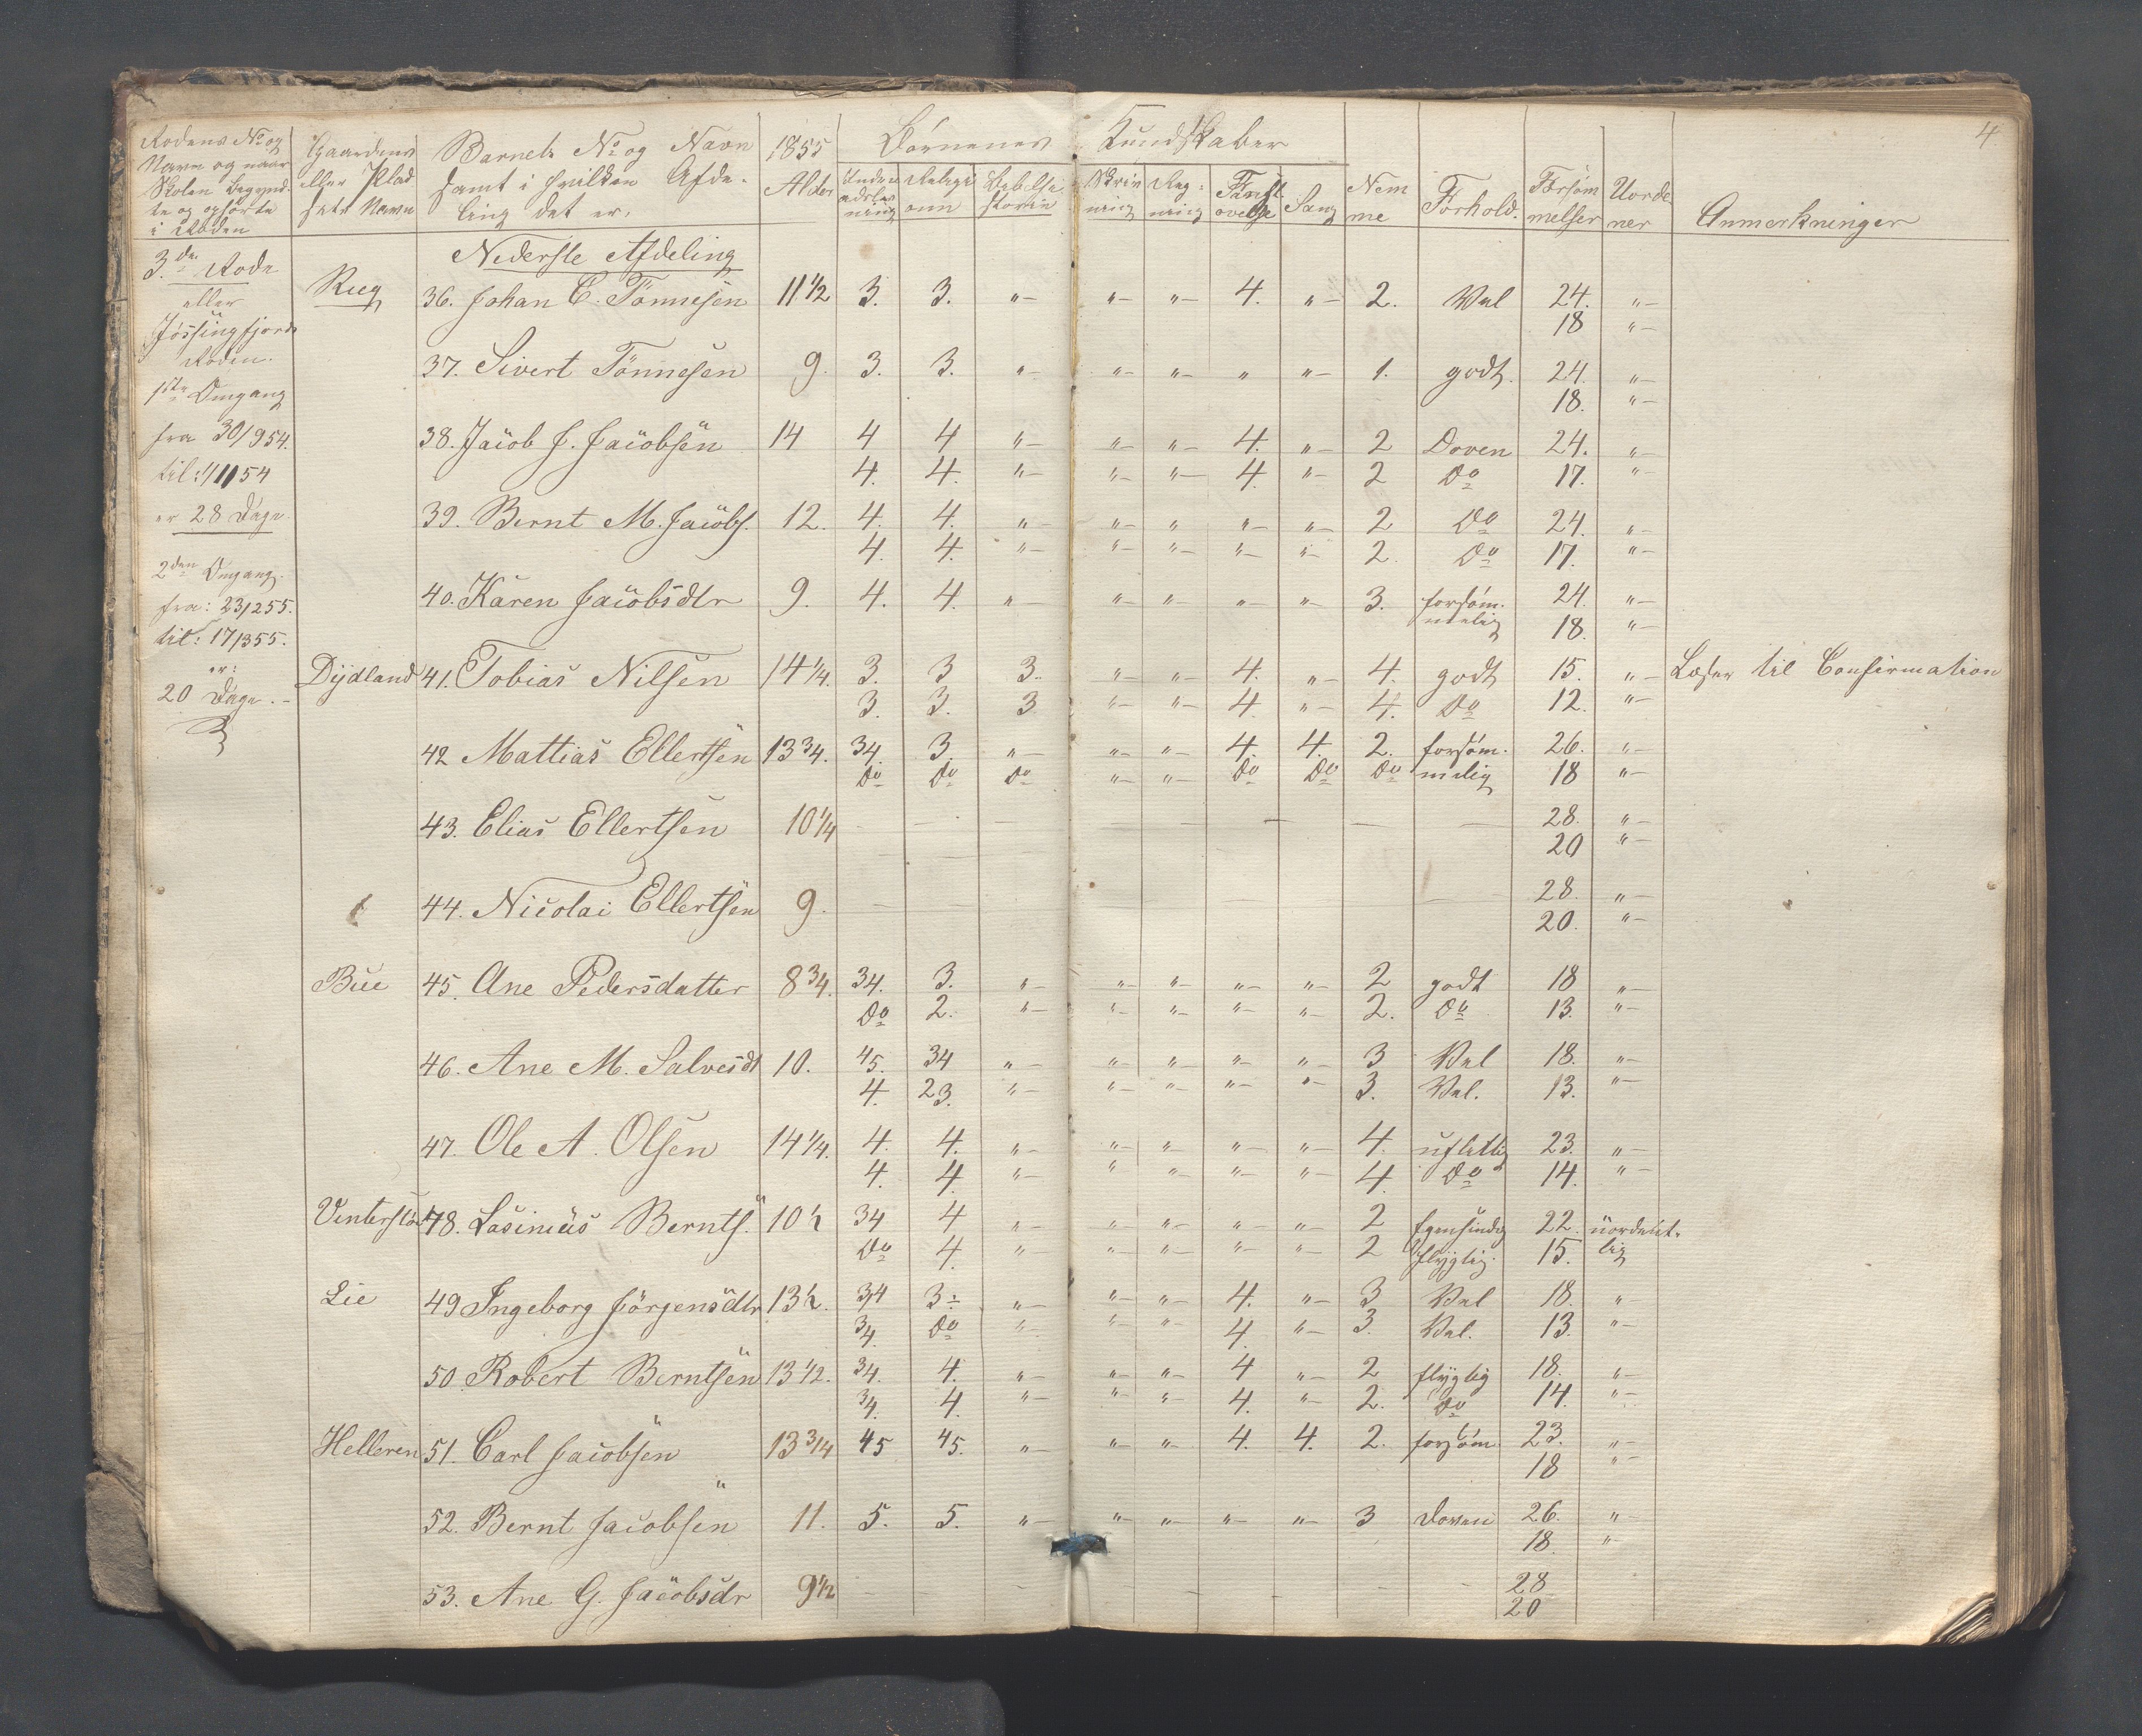 4.
Rodens No og
Navn og naar
Skolen begynd-
te og ophørte
i Roden
Gaardens
eller Plad
sets Navn
Barnets No og Navn
samt i hvilken Afde-
ling det er.
1855
Alder
Børnenes Kundskaber
Religi
onn
Bibelhi
storie
Skriv
ning
Reg-
ning
Sang
Nem
me
Forhold.
Forsøm
melser
Uorde
ner
Anmerkninger
3de Rode
eller
Jøssingfjords
Roden.
1ste Omgang
fra 30/9 54.
til: 1/11 54
er 28 Dage.
2den Omgang.
fra: 23/2 55.
til: 17/3 55.
er:
20 Dage.-
Nederste Afdeling
Rug 36. Johan C. Tønnesen 11 1/2 3. 3. "- "- "- 4. "- 2. Vel 24. "-
18 "-
37. Sivert Tønnesen 9. 3. 3. "- "- "- " "- 1. godt. 24. "-
18. "-
38. Jacob J. Jacobsen 14 4 4 "- "- "- 4. "- 2 Doven 24. "-
4. 4. "- "- "- 4 "- 2 Do 17. "-
39. Bernt M. Jacobs. 12. 4. 4. "- "- " "- "- 2 Do 24. "-
4. 4. "- "- "- "- "- 2. Do 17. "-
40. Karen Jacobsdtr 9. 4. 4. "- "- "- "- "- 3. forsøm- 24. "-
melig 18. "-
Dydland 41. Tobias Nilsen 14 1/4. 3. 3 3. "- "- 4. "- 4. godt 15. "- Læser til Confirmation
3. 3. 3 "- "- 4. "- 4. Do 12. "-
42 Mattias Ellertsen 13 3/4. 34. 3. "- "- "- 4. 4. 2. forsøm- 26. "-
Do Do Do "- "- Do Do Do melig 18 "-
43. Elias Ellertsen 10 1/4 - - - - - - - - - 28. "-
20 "-
44. Nicolai Ellertsen 9. - - - - - - - - - 28. "-
20. "-
Bue 45. Ane Pedersdatter 8 3/4. 34. 3. "- "- "- "- "- 2 godt 18 "-
Do 2. "- "- "- "- "- 2. Do 13. "-
46. Ane M. Salvesdt 10. 45. 34 "- "- "- "- "- 3 Vel 18. "-
4. 23. "- "- "- "- "- 3. Vel. 13. "-
47. Ole A. Olsen 14 1/4. 4. 4. "- "- "- "- "- 4. uflittig 23. "-
4. 4. "- " "- "- "- 4. Do 14. "-
48. Lasinius Bernts. 10 1/2 34 4 "- "- "- "- "- 2 Egensindig 22. uordent-
Do 4. "- "- "- "- "- 2 flygtig. 15. lig
Lie 49 Ingeborg Jørgensdtr 13 1/2. 34 3. "- "- "- 4. "- 3 Vel 18. "-
34. Do "- "- "- 4. "- 3. Vel. 13. "-
50. Robert Berntsen 13 1/2. 34. 4. "- "- "- 4 "- 2 flygtig 18. "-
34. 4. "- "- "- 4. "- 2. Do 14. "-
Helleren 51. Carl Jacobsen 13 3/4 45 45. "- "- "- 4. 4. 2. forsøm. 23. "-
18 "-
52. Bernt Jacobsen 11. 5. 5. "- "- "- "- "- 3 Doven 26. "-
18. "-
53. Ane G. Jacobsdr 9 1/2 - - - - - - - 28
20